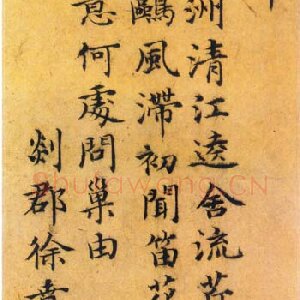 洲清江遶舍流芰
鷗風滯初聞笛花
意何處問巢由
剡郡徐熹
Shufawang.CN